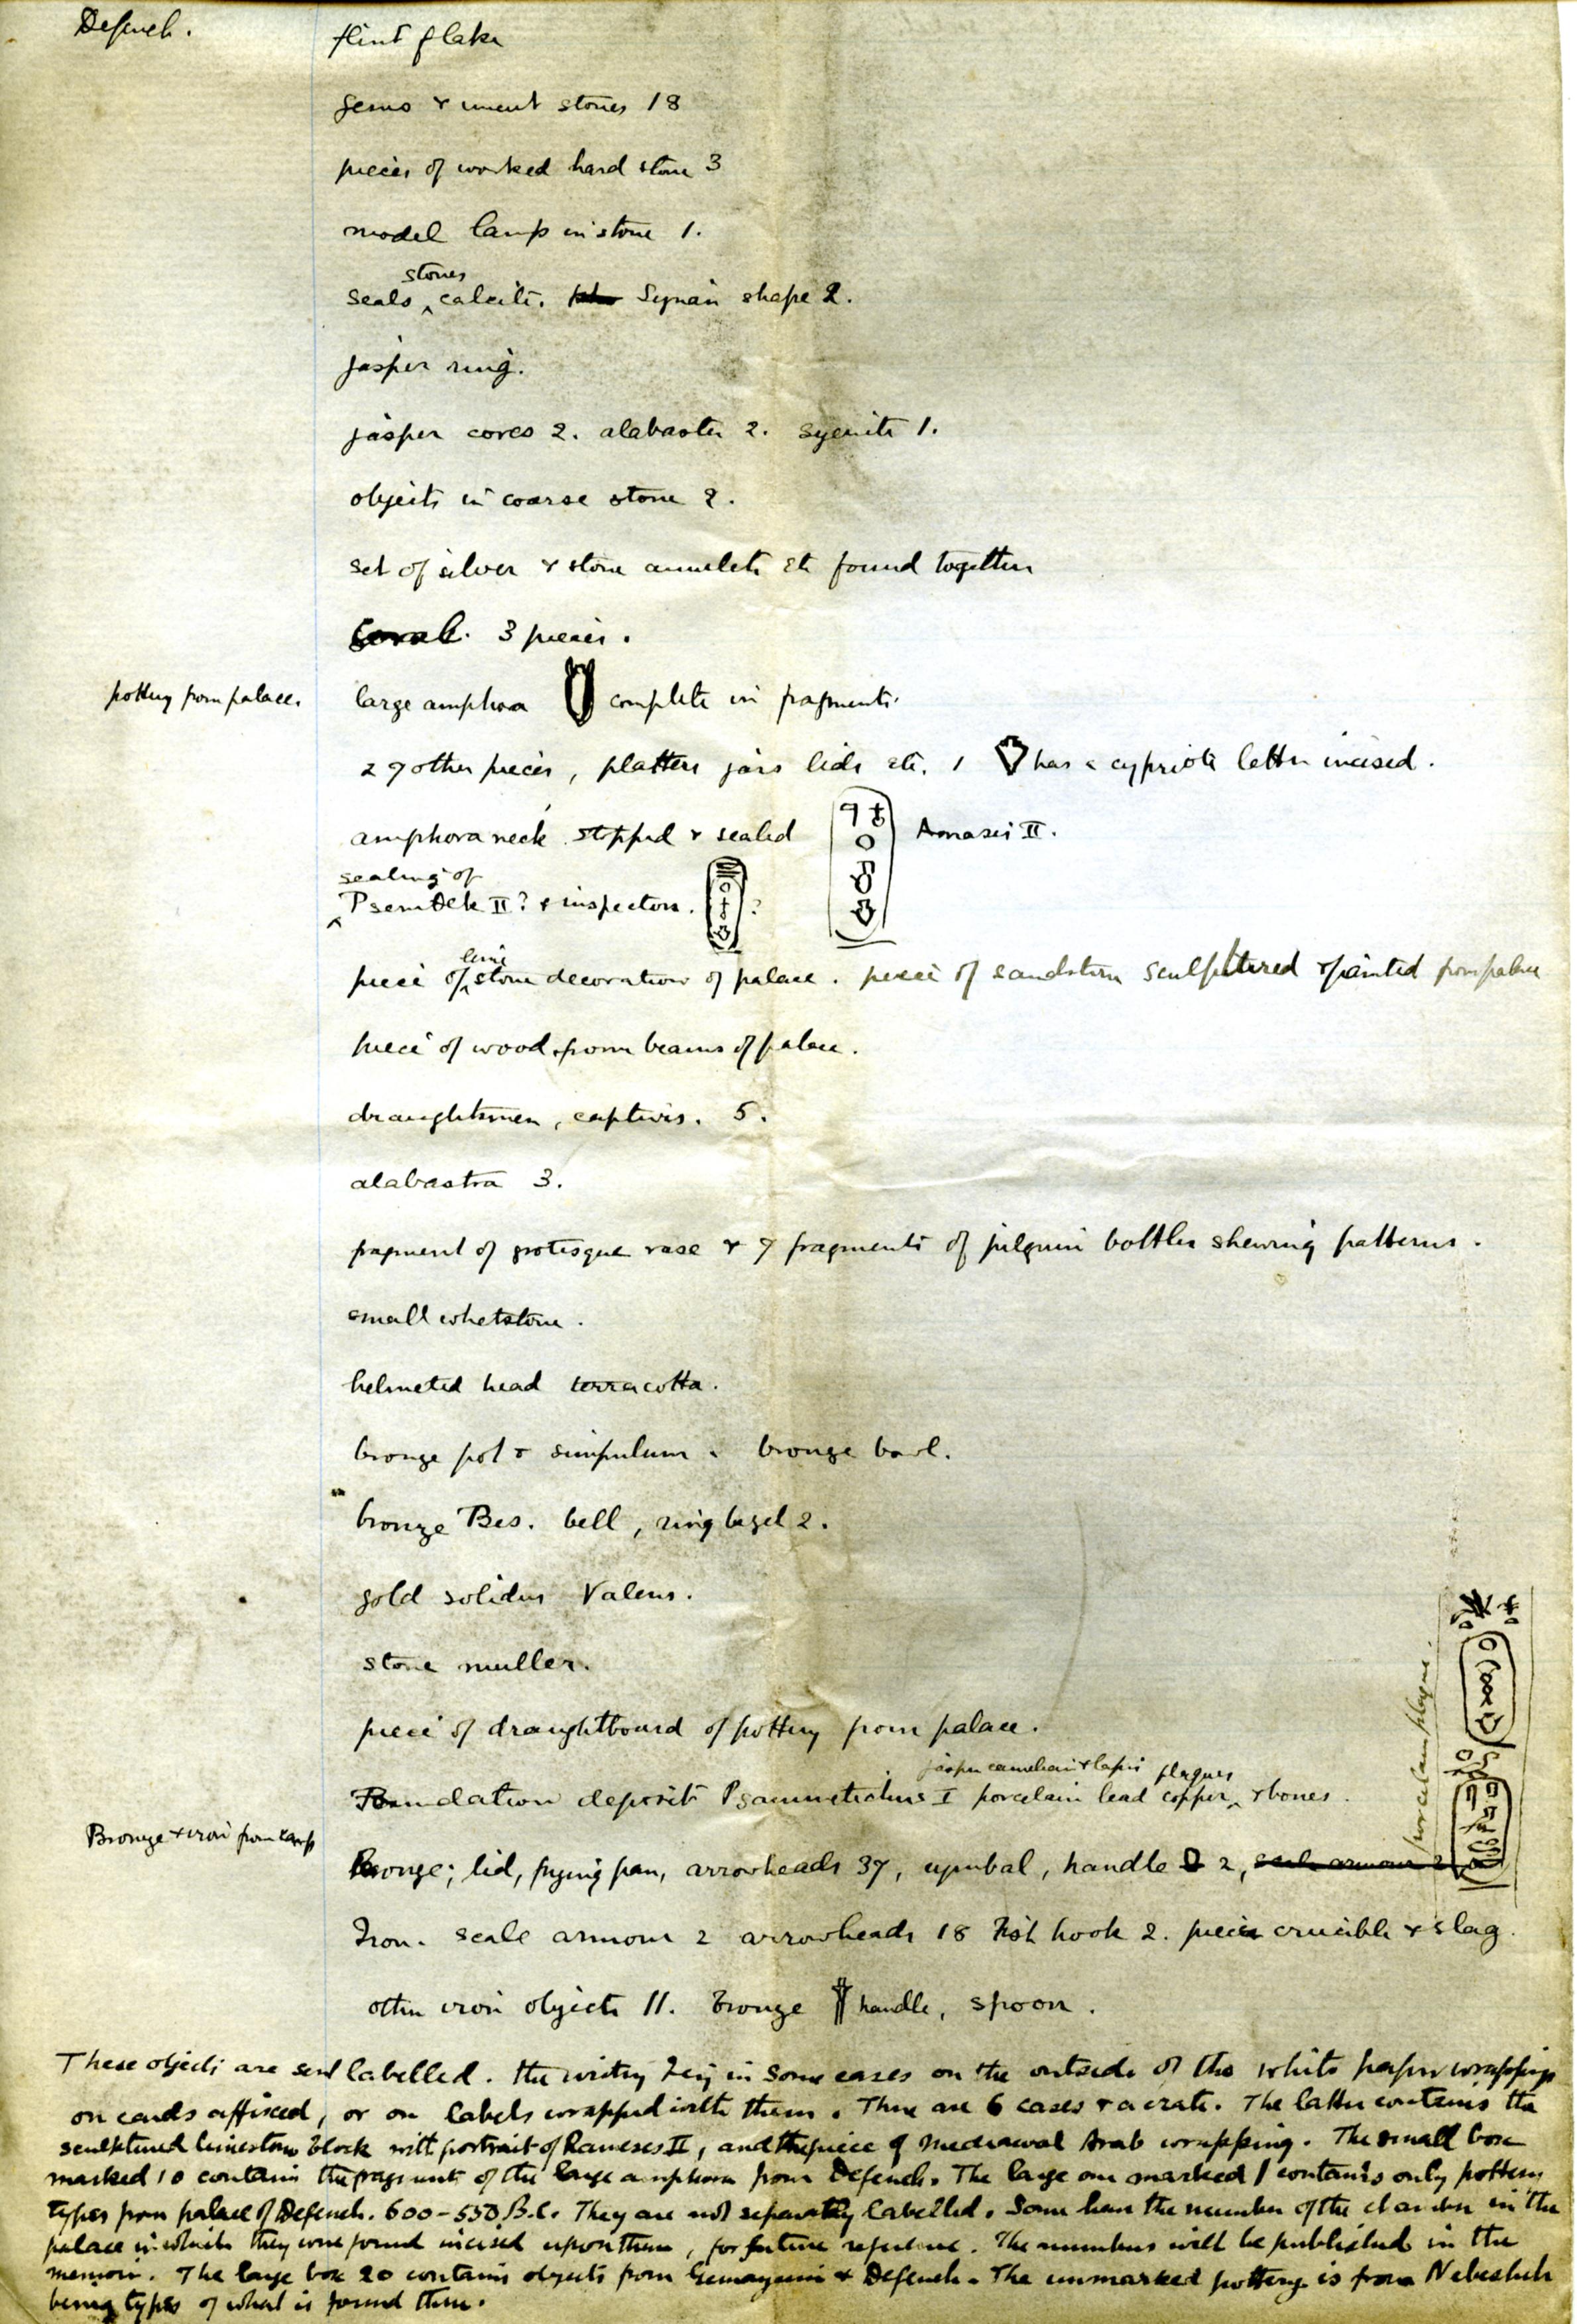 Defeneh. flint flake
gems & uncut stones 18
pieces of worked hard stone 3
model lamp in stone 1.
stones
seals ^ calcite. Syrian shape 2.
jasper ring.
jasper cores 2. alabaster 2. syenite 1.
objects in coarse stone 2.
set of silver & stone amulets etc found together
3 pieces.
pottery from palace. large amphora complete in fragments.
27 other pieces, platters jars lids etc. 1 has a cypriote letter incised.
amphora neck stopped & sealed Amasis II.
sealing of
^ Psemtek II? & inspectors. ?
lime
piece of ^ stone decoration of palace. piece of sandstone sculptured & painted from palace
piece of wood from beams of palace.
draughtsmen, captives. 5.
alabastra 3.
fragment of grotesque vase & 7 fragments of pilgrim bottles shewing patterns.
small whetstone.
helmeted head terracotta.
bronze pot & simpulum. bronze bowl.
bronze Bes. bell, ring bezel 2.
gold solidus Valens.
stone muller.
piece of draughtboard of pottery from palace.
jasper carnelian & lapis plaques
Foundation deposit Psammetichus I porcelain lead copper ^ & bones.
porcelain plaque
Bronze & iron from camp Bronze; lid, frying pan, arrowheads 37, cymbal, handle 2, scale armour 2
Iron. scale armour 2 arrowheads 18 Fish hook 2. pieces crucible & slag.
other iron objects 11. Bronze handle, spoon.
These objects are sent labelled. the writing being in some cases on the outside of the white paper wrappings
on cards affixed, or on labels wrapped with them. There are 6 cases & a crate. The latter contains the
sculptured limestone block with portrait of Rameses II, and the piece of mediaeval Arab wrapping. The small box
marked 10 contains the fragments of the large amphora from Defeneh. The large one marked 1 contains only pottery
types from palace of Defeneh. 600-550 B.C. They are not separately labelled. Some have the number of the chamber in the
palace in which they were found incised upon them, for future reference. The numbers will be published in the
memoir. The large box 20 contains objects from Gemayemi & Defeneh. The unmarked pottery is from Nebesheh
being types of what is found there.